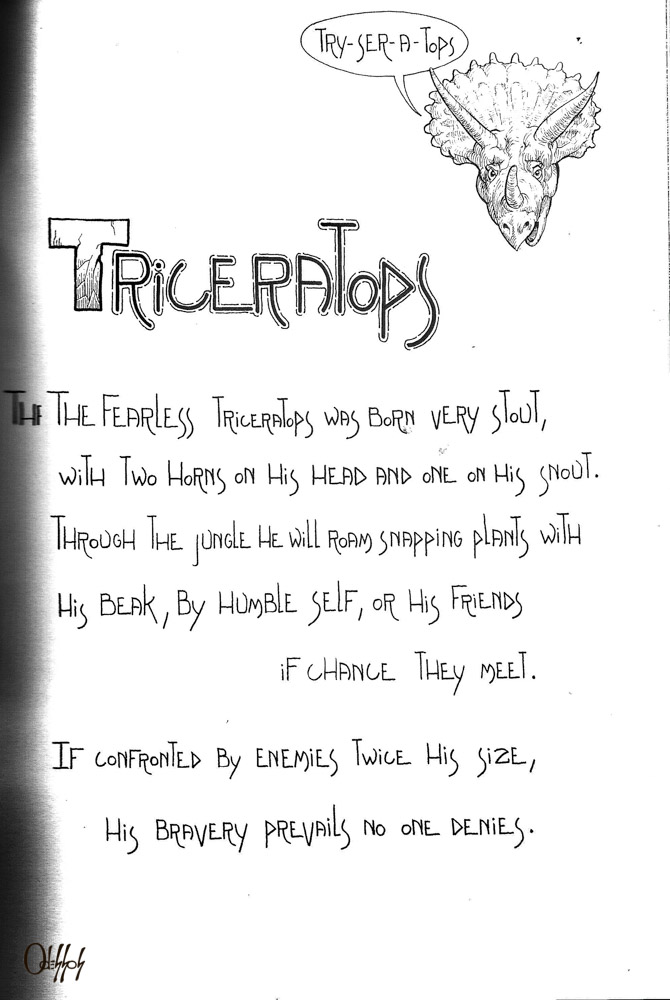 TRY-SER-A-TOPS
TRICERATOPS
THE THE FEARLESS TRICERATOPS WAS BORN VERY STOUT,
WITH TWO HORNS ON HIS HEAD AND ONE ON HIS SNOUT.
THROUGH THE JUNGLE HE WILL ROAM SNAPPING PLANTS WITH
HIS BEAK, BY HUMBLE SELF, OR HIS FRIENDS
IF CHANCE THEY MEET.
IF CONFRONTED BY ENEMIES TWICE HIS SIZE,
HIS BRAVERY PREVAILS NO ONE DENIES.